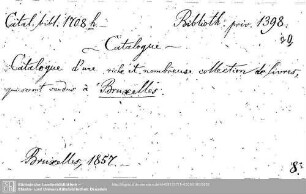 Catal. bibl. 1708 h Biblioth. priv. 1398.
Catalogue
Catalogue d'une riche et nombreuse collection de livres,
qui seront vendus à Bruxelles.
Bruxelles, 1857. 8°